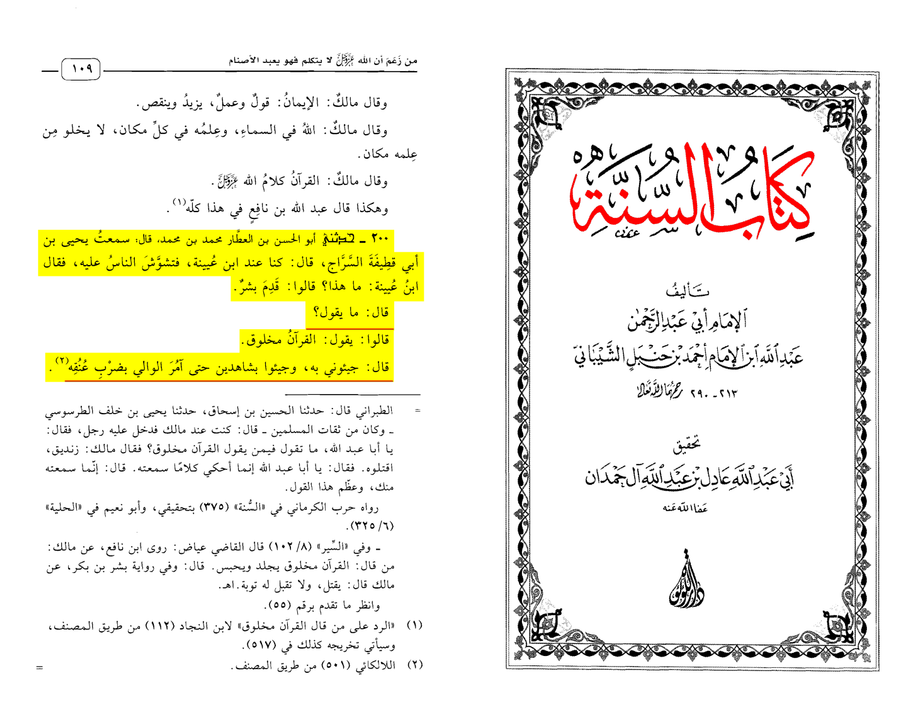 كِتَابُ السُّنَّةِ
تأليف
الإمام أبي عبد الرحمن
عبد الله ابن الإمام أحمد بن حنبل الشيباني
٢١٣ - ٢٩٠ رحمهما الله تعالى
تحقيق
أبي عبد الله عادل بن عبد الله آل حمدان
عفا الله عنه
دار اللؤلؤة
من زَعَمَ أن الله عَزَّوَجَلَّ لا يتكلم فهو يعبد الأصنام
١٠٩
وقال مالكٌ: الإيمانُ: قولٌ وعملٌ، يزيدُ وينقص.
وقال مالكٌ: اللهُ في السماءِ، وعِلمُه في كلِّ مكان، لا يخلو مِن
عِلمه مكان.
وقال مالكٌ: القرآنُ كلامُ الله عَزَّوَجَلَّ.
وهكذا قال عبد الله بن نافِع في هذا كلّه(١).
٢٠٠ ـ حدثني أبو الحسن بن العطَّار محمد بن محمد، قال: سمعتُ يحيى بن
أبي قطِيفَةَ السَّرَّاج، قال: كنا عند ابن عُيينة، فتشوَّشَ الناسُ عليه، فقال
ابنُ عُيينة: ما هذا؟ قالوا: قَدِمَ بشرٌ.
قال: ما يقول؟
قالوا: يقول: القرآنُ مخلوق.
قال: جيئوني به، وجيئوا بشاهدين حتى آمُرَ الوالي بضرْبِ عُنُقِه(٢).
= الطبراني قال: حدثنا الحسين بن إسحاق، حدثنا يحيى بن خلف الطرسوسي
ـ وكان من ثقات المسلمين ـ قال: كنت عند مالك فدخل عليه رجل، فقال:
يا أبا عبد الله، ما تقول فيمن يقول القرآن مخلوق؟ فقال مالك: زنديق،
اقتلوه. فقال: يا أبا عبد الله إنما أحكي كلامًا سمعته. قال: إنّما سمعته
منك، وعظّم هذا القول.
رواه حرب الكرماني في «السُّنة» (٣٧٥) بتحقيقي، وأبو نعيم في «الحلية»
(٦/ ٣٢٥).
ـ وفي «السِّير» (٨/ ١٠٢) قال القاضي عياض: روى ابن نافع، عن مالك:
من قال: القرآن مخلوق يجلد ويحبس. قال: وفي رواية بشر بن بكر، عن
مالك قال: يقتل، ولا تقبل له توبة.اهـ.
وانظر ما تقدم برقم (٥٥).
(١) «الرد على من قال القرآن مخلوق» لابن النجاد (١١٢) من طريق المصنف،
وسيأتي تخريجه كذلك في (٥١٧).
(٢) اللالكائي (٥٠١) من طريق المصنف. =